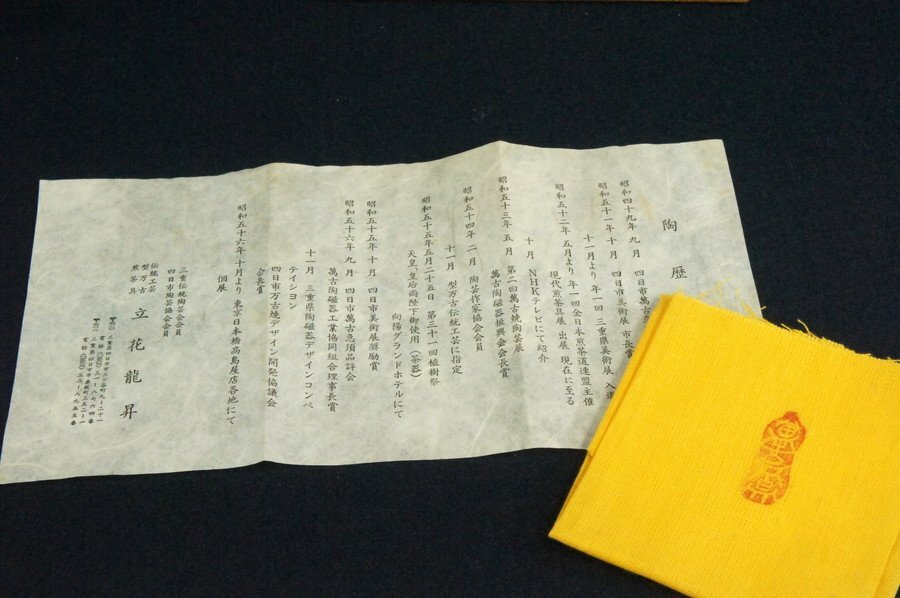 陶歴
昭和四十九年 九月 四日市萬古
昭和五十一年 十月 四日市美術展 市長賞
十一月より 年一回 三重県美術展 入選
昭和五十二年 五月より 年一回全日本煎茶道連盟主催
現代煎茶具展 出展 現在に至る
十月 NHKテレビにて紹介
昭和五十三年 五月 第二四萬古焼陶芸展
萬古陶磁器振興会会長賞
昭和五十四年 二月 陶芸作家協会会員
十一月 型万古伝統工芸に指定
昭和五十五年五月二十五日 第三十一回植樹祭
天皇、皇后両陛下御使用（茶器）
向陽グランドホテルにて
昭和五十五年 十月 四日市美術展奨励賞
昭和五十六年 九月 四日市萬古急須品評会
萬古陶磁器工業協同組合理事長賞
十一月 三重県陶磁器デザインコンペ
テイシヨン
四日市万古焼デザイン開発協議会
会長賞
昭和五十六年十月より 東京日本橋高島屋店各地にて
個展
三重伝統陶芸会会員
四日市陶芸協会会員
伝統工芸
型万古
煎茶具
立花龍昇